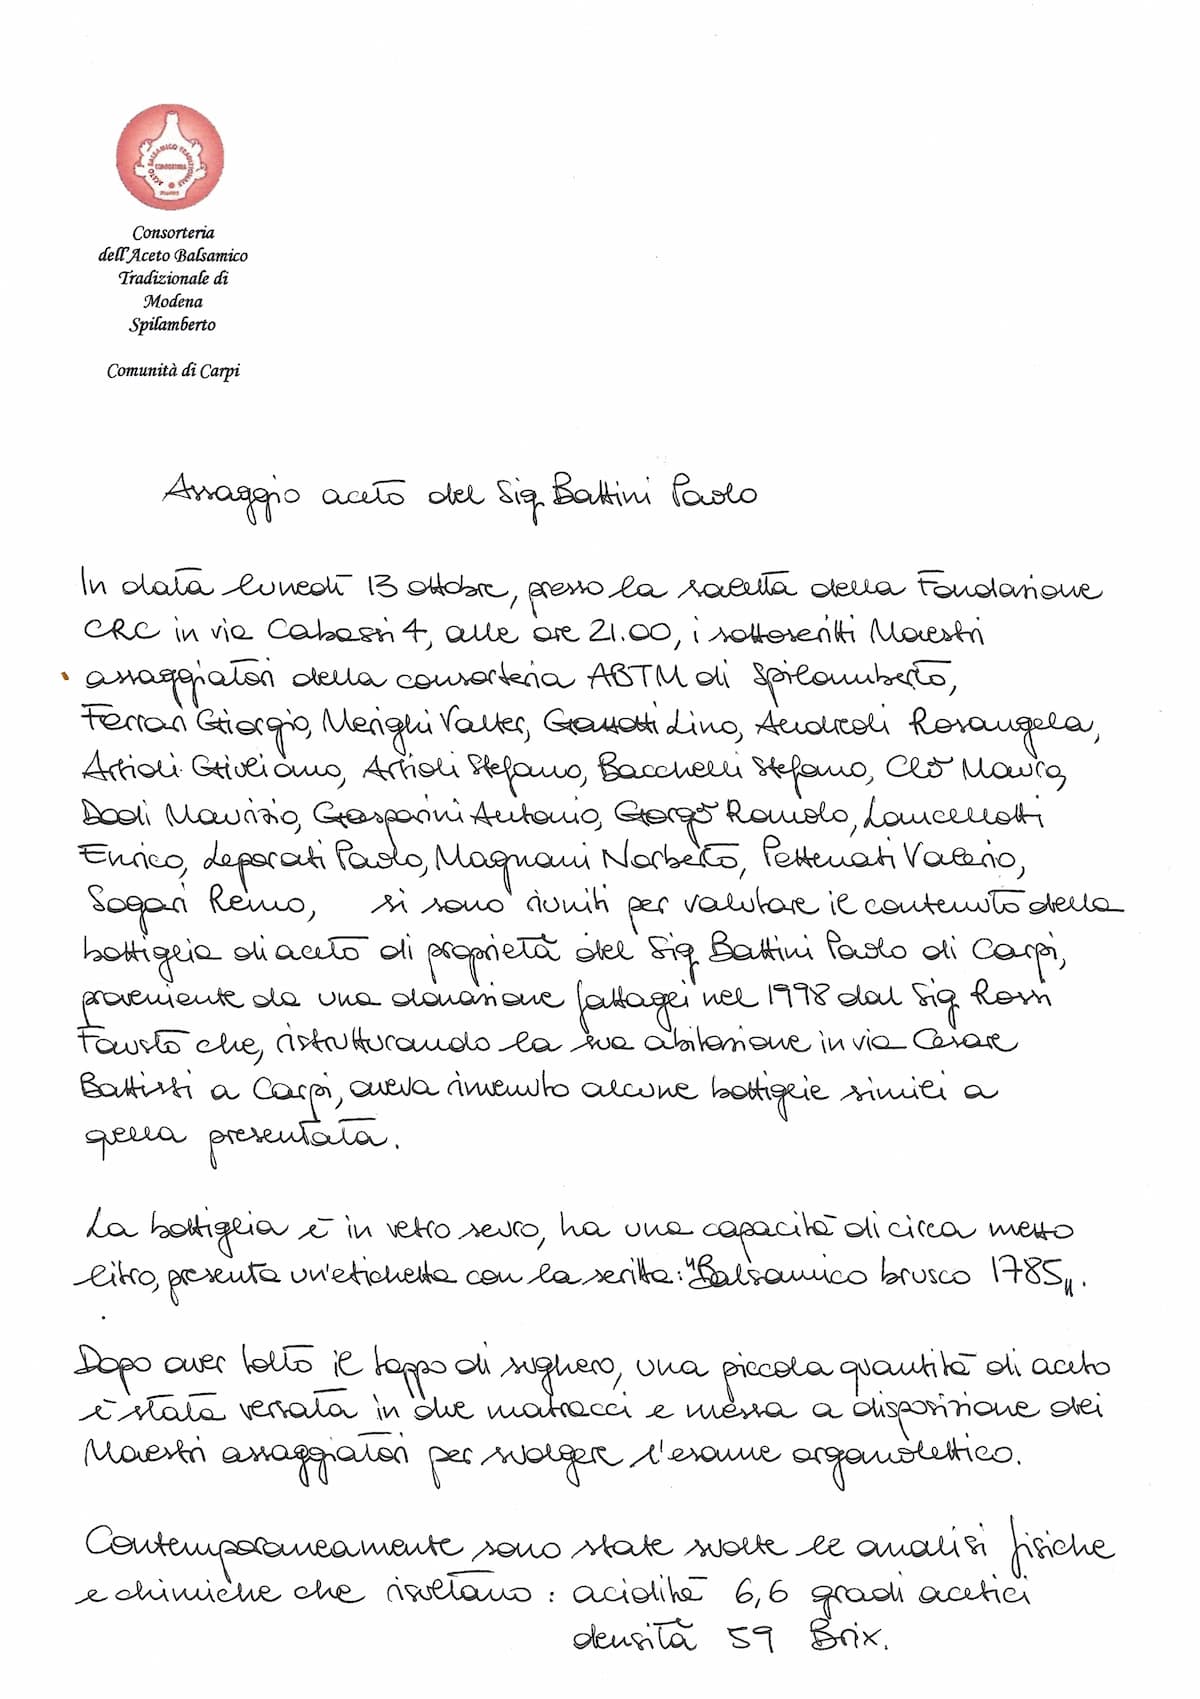 ACETO BALSAMICO TRADIZIONALE
CONSORTERIA
Consorteria
dell'Aceto Balsamico
Tradizionale di
Modena
Spilamberto
Comunità di Carpi
Assaggio aceto del Sig. Battini Paolo
In data lunedì 13 ottobre, presso la saletta della Fondazione
CRC in via Cabassi 4, alle ore 21.00, i sottoscritti Maestri
assaggiatori della consorteria ABTM di Spilamberto,
Ferrari Giorgio, Merighi Valter, Garuti Lino, Andreoli Rosangela,
Artioli Giuliano, Artioli Stefano, Bacchelli Stefano, Clò Maura,
Dodi Maurizio, Gasparini Antonio, Gorgò Romolo, Lancellotti
Enrico, Leporati Paolo, Magnani Norberto, Pettenati Valerio,
Sogari Remo, si sono riuniti per valutare il contenuto della
bottiglia di aceto di proprietà del Sig. Battini Paolo di Carpi,
proveniente da una donazione fattagei nel 1998 dal Sig. Rossi
Fausto che, ristrutturando la sua abitazione in via Cesare
Battisti a Carpi, aveva rinvenuto alcune bottiglie simili a
qella presentata.
La bottiglia è in vetro scuro, ha una capacità di circa mezzo
litro, presenta un'etichetta con la scritta: "Balsamico brusco 1785".
Dopo aver tolto il tappo di sughero, una piccola quantità di aceto
è stata versata in due matracci e messa a disposizione dei
Maestri assaggiatori per svolgere l'esame organolettico.
Contemporaneamente sono state svolte le analisi fisiche
e chimiche che risultano: acidità 6,6 gradi acetici
densità 59 Brix.